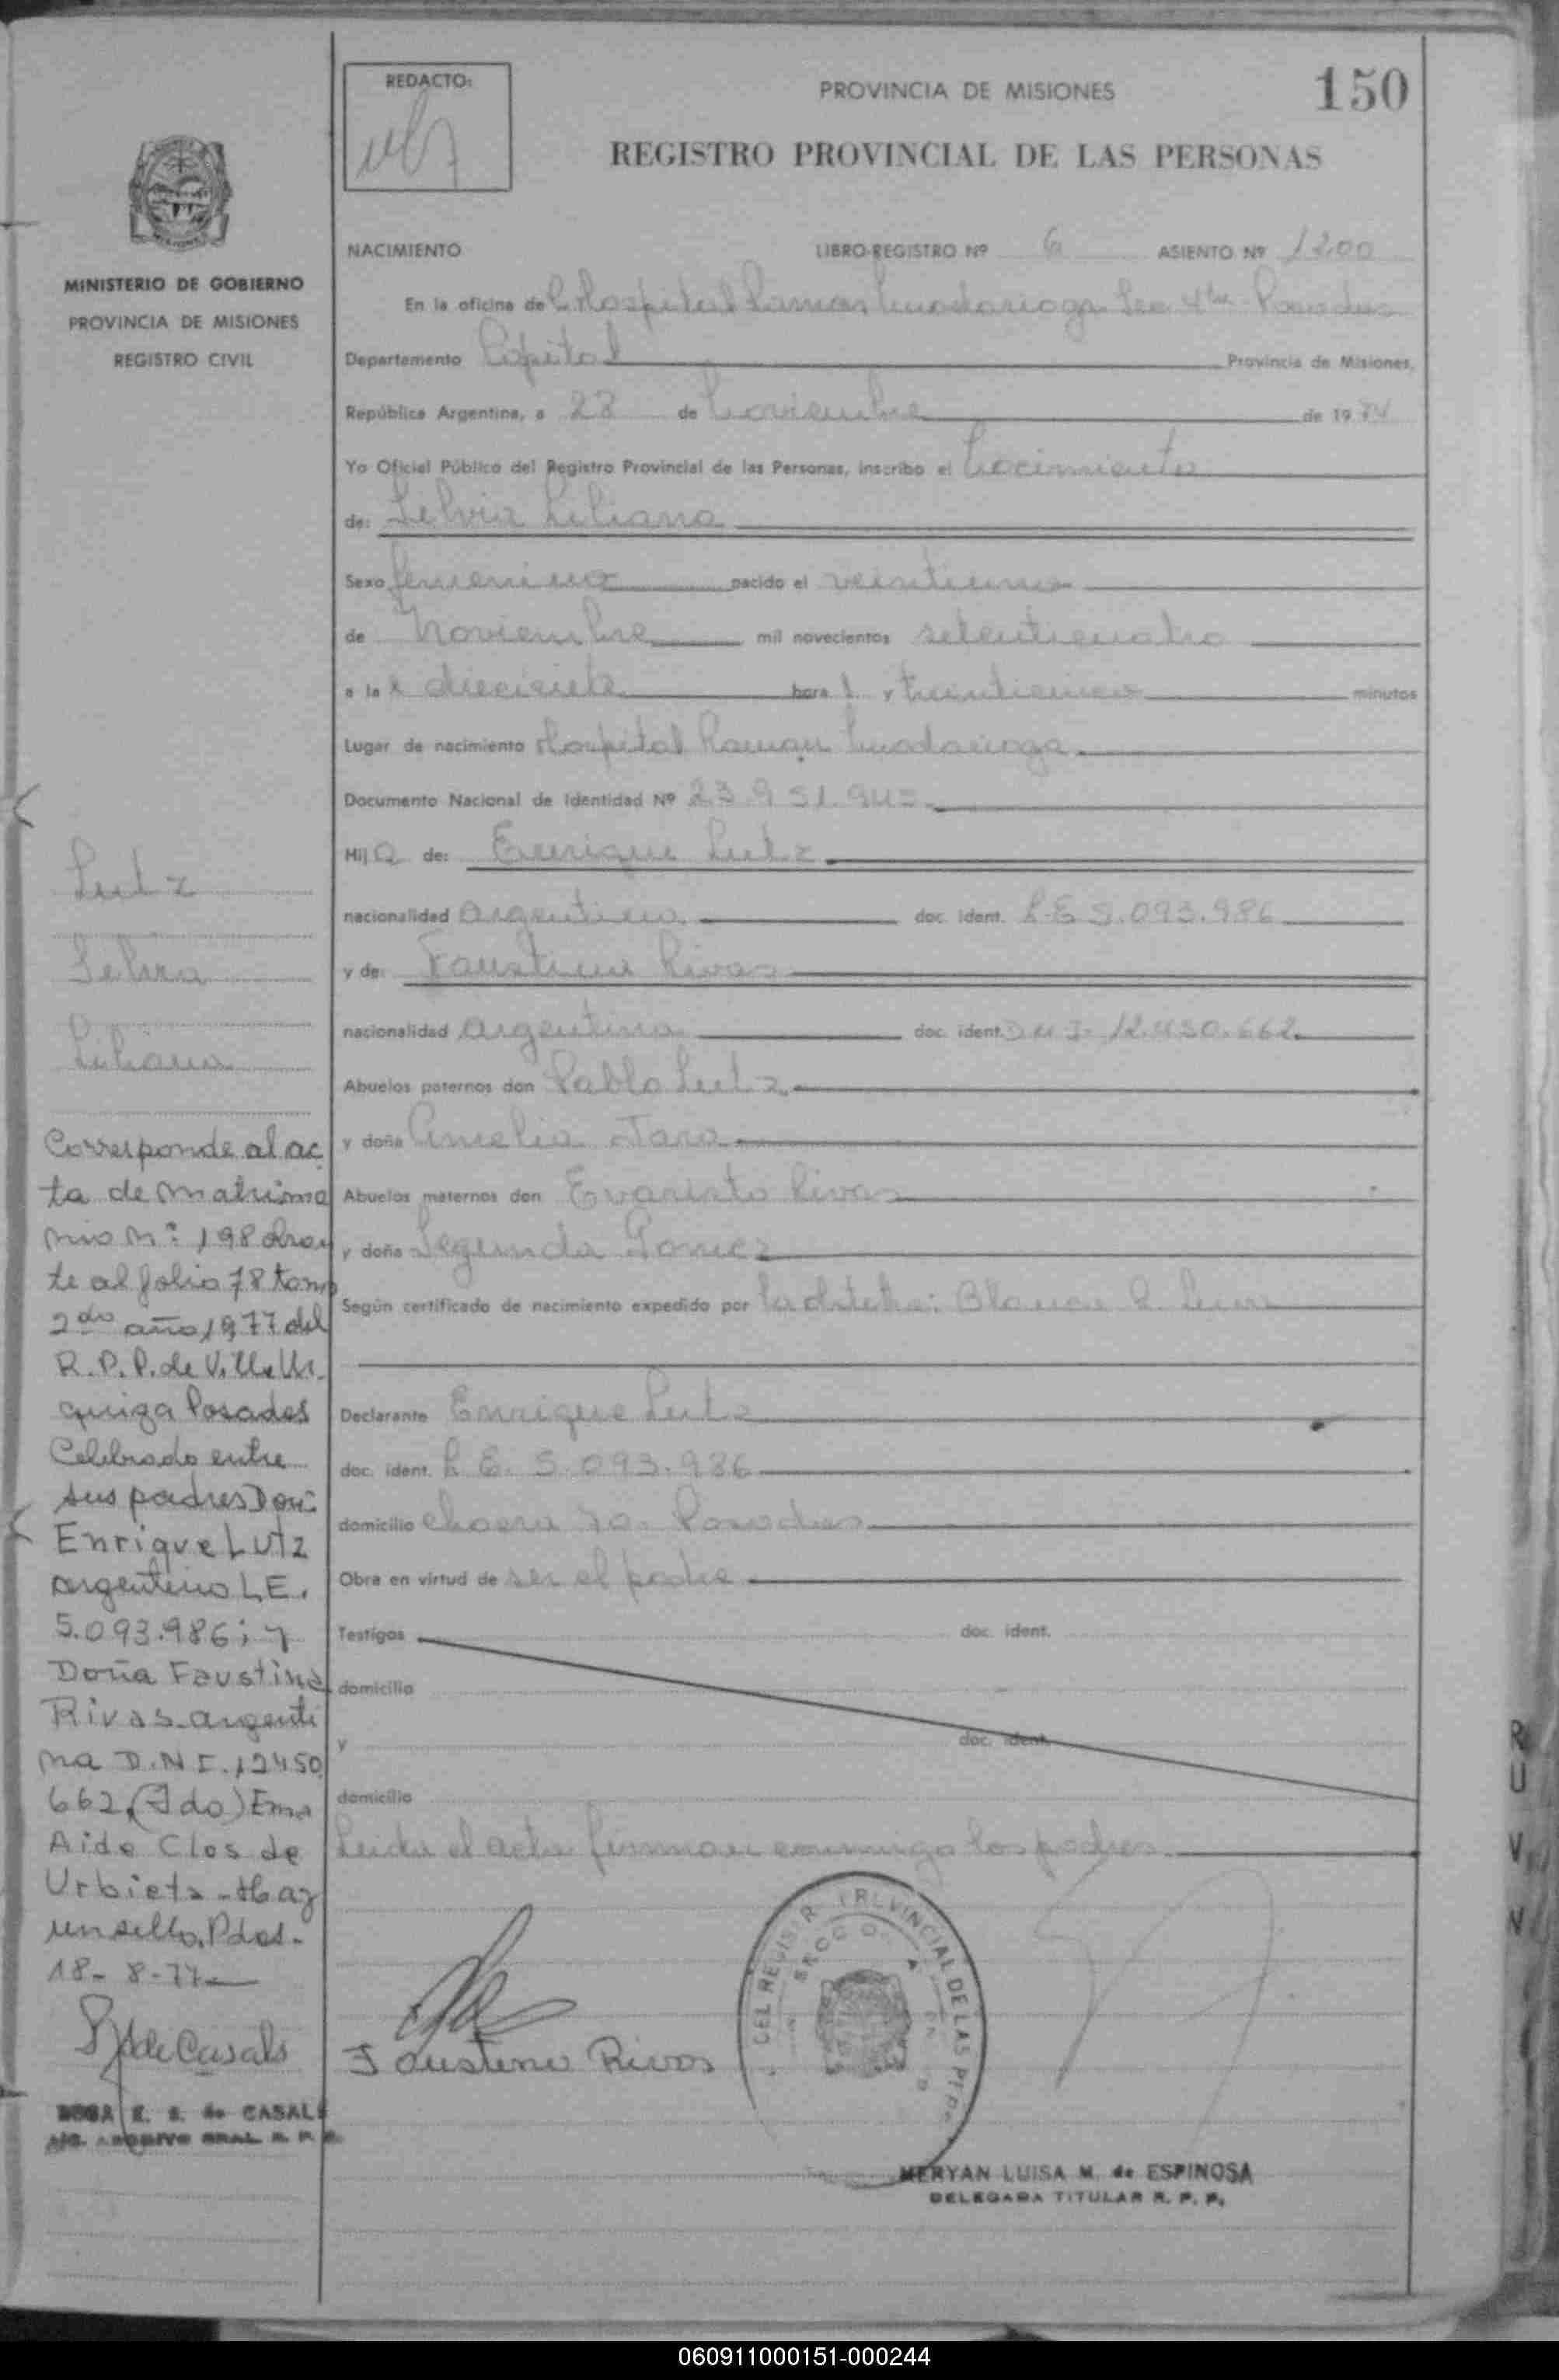 REDACTO:
PROVINCIA DE MISIONES
150
REGISTRO PROVINCIAL DE LAS PERSONAS
MINISTERIO DE GOBIERNO
PROVINCIA DE MISIONES
REGISTRO CIVIL
NACIMIENTO LIBRO-REGISTRO Nº 6 ASIENTO Nº 1200
En la oficina de Hospital Ramon Madariaga Posadas
Departamento Capital Provincia de Misiones,
República Argentina, a 28 de Noviembre de 1974
Yo Oficial Público del Registro Provincial de las Personas, inscribo el Nacimiento
de: Silvia Liliana
Sexo femenino nacido el veintiuno
de Noviembre mil novecientos setenticuatro
a la s diecisiete hora s y minutos
Lugar de nacimiento Hospital Ramon Madariaga
Documento Nacional de Identidad Nº 23.951.945
Hij a de: Enrique Lutz
nacionalidad argentino doc. ident. L.E 5.093.986
y de: Faustina Rivas
nacionalidad argentina doc. ident. D N I- 12.450.662
Abuelos paternos don Pablo Lutz
y doña Amelia Jara
Abuelos maternos don Evaristo Rivas
y doña Segunda Gomez
Según certificado de nacimiento expedido por la obstetra: Blanca
Declarante Enrique Lutz
doc. ident. L E. 5.093.986
domicilio chacra 70. Posadas
Obra en virtud de ser el padre
Testigos doc. ident.
domicilio
y doc. ident.
domicilio
Leida el acta firman conmigo los padres
Faustina Rivas
DEL REGISTRO PROVINCIAL DE LAS PERS
MERYAN LUISA M. de ESPINOSA
DELEGADA TITULAR R. P. P.
Lutz
Silvia
Liliana
Corresponde al ac
ta de matrimo
nio nº: 198 obran
te al folio 78 tomo
2do año 1977 del
R.P.P. de Villa Ur
quiza Posadas
Celebrado entre
sus padres Don:
Enrique Lutz
argentino L.E.
5.093.986; y
Doña Faustina
Rivas argenti
na D.N.I. 12450
662. (Fdo) Ema
Aide Clos de
Urbieta - Hay
un sello. Pdas.
18- 8-77
de Casals
ROSA E. S. de CASALS
A/C. ARCHIVO GRAL R. P. P.
R
U
V
N
060911000151-000244